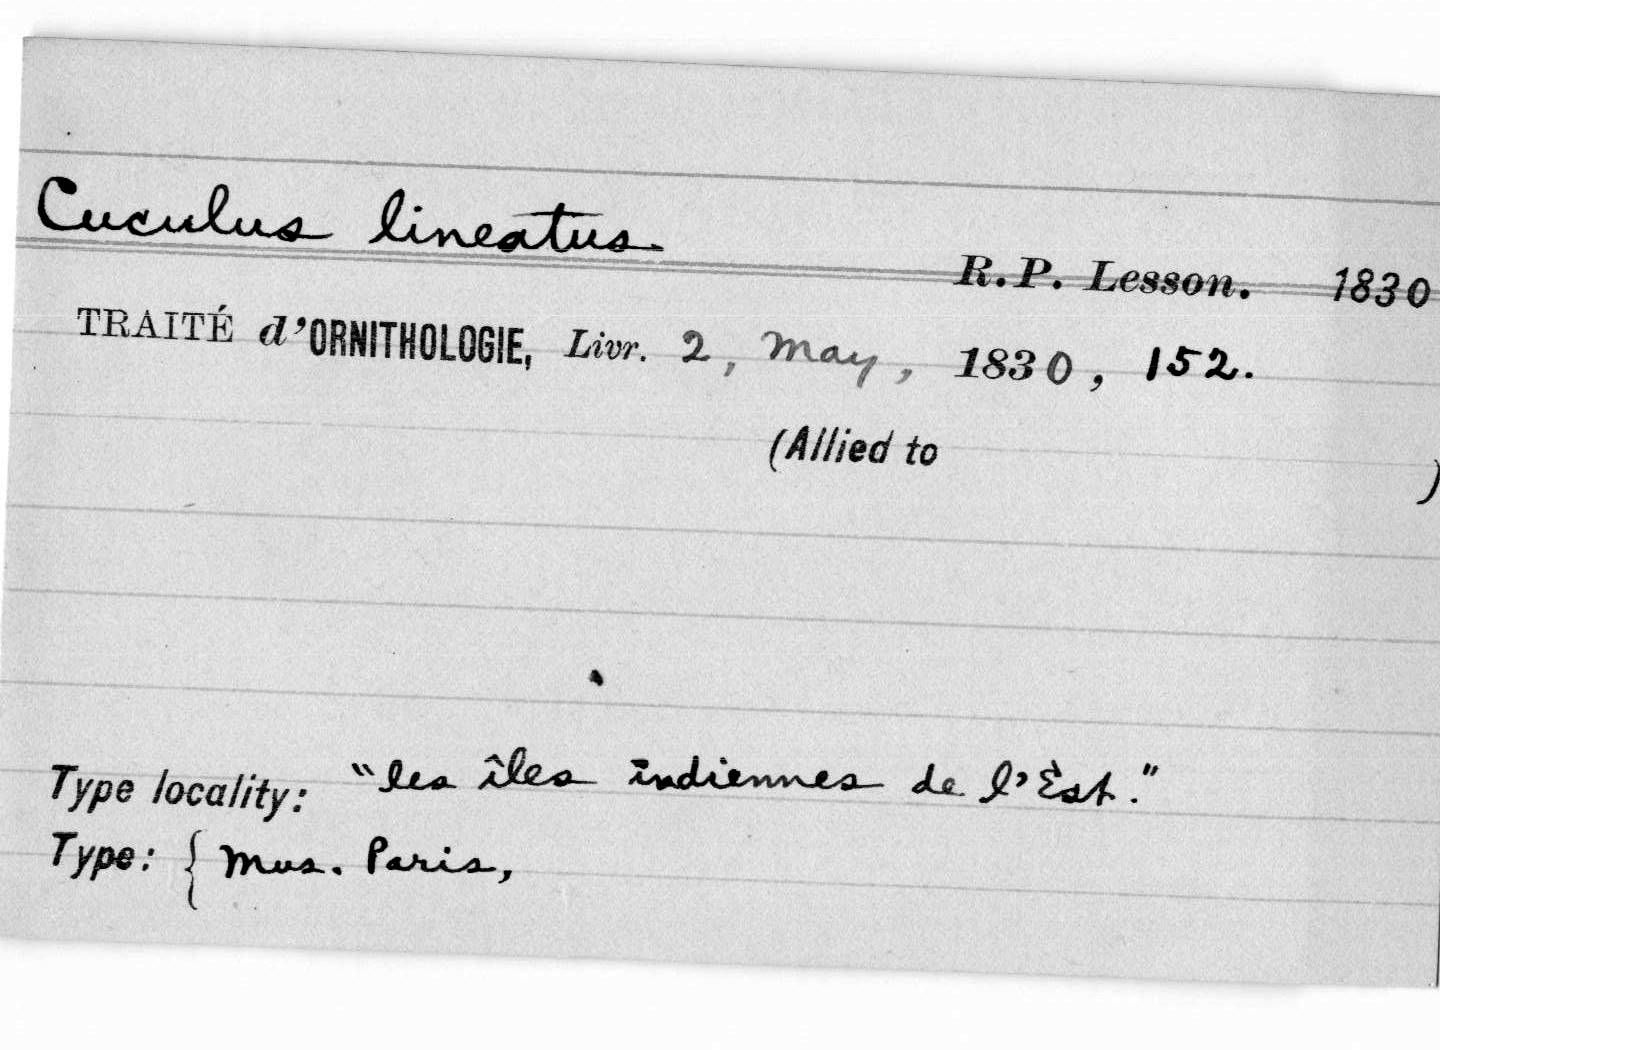 Cuculus lineatus
R.P. Lesson. 1830
TRAITÉ d'ORNITHOLOGIE, Livr. 2, May, 1830, 152.
(Allied to )
Type locality: "les îles indiennes de l'Est."
Type: { Mus. Paris,